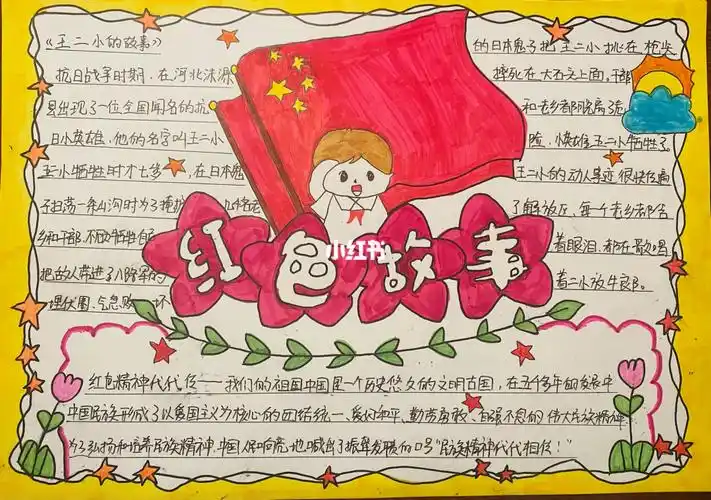 《王二小的故事》
抗日战争时期，在河北涞源
县出现了一位全国闻名的抗
日小英雄，他的名字叫王二小
王二小牺牲时才七岁，在日本鬼
子扫荡一条山沟时为了掩护
乡和干部，不
把敌人带进了八路军的
埋伏圈，气急败坏
的日本鬼子把王二小挑在枪尖
摔死在大石头上面，干部
和老乡都脱离了危
险，小英雄王二小牺牲了
王二小的动人事迹很快传遍
了解放区，每个老乡都含
着眼泪，都在歌唱
着二小放牛郎。
小红书
红色故事
红色精神代代传——我们的祖国中国是一个历史悠久的文明古国，在五千多年的发展中
中国民族形成了以爱国主义为核心的团结统一、爱好和平、勤劳勇敢、自强不息的伟大民族精神
为了弘扬和培养民族精神，中国人民响亮地喊出了振华发聩的口号"民族精神代代相传！"